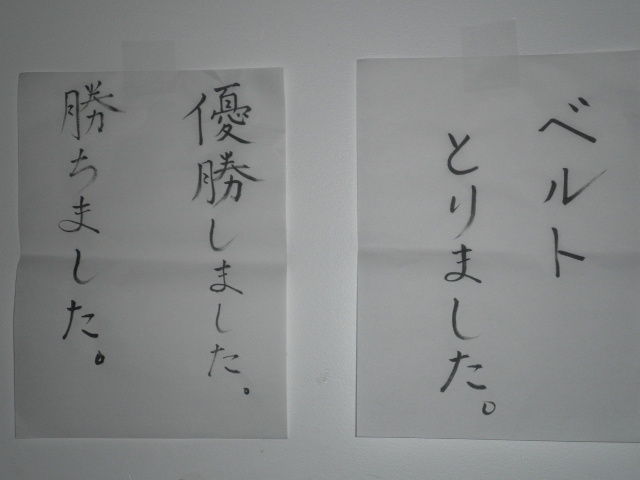 ベルト
とりました。
優勝しました。
勝ちました。